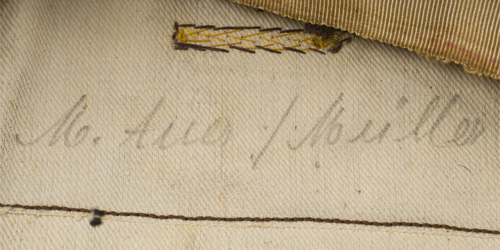 M. Aug / Müller